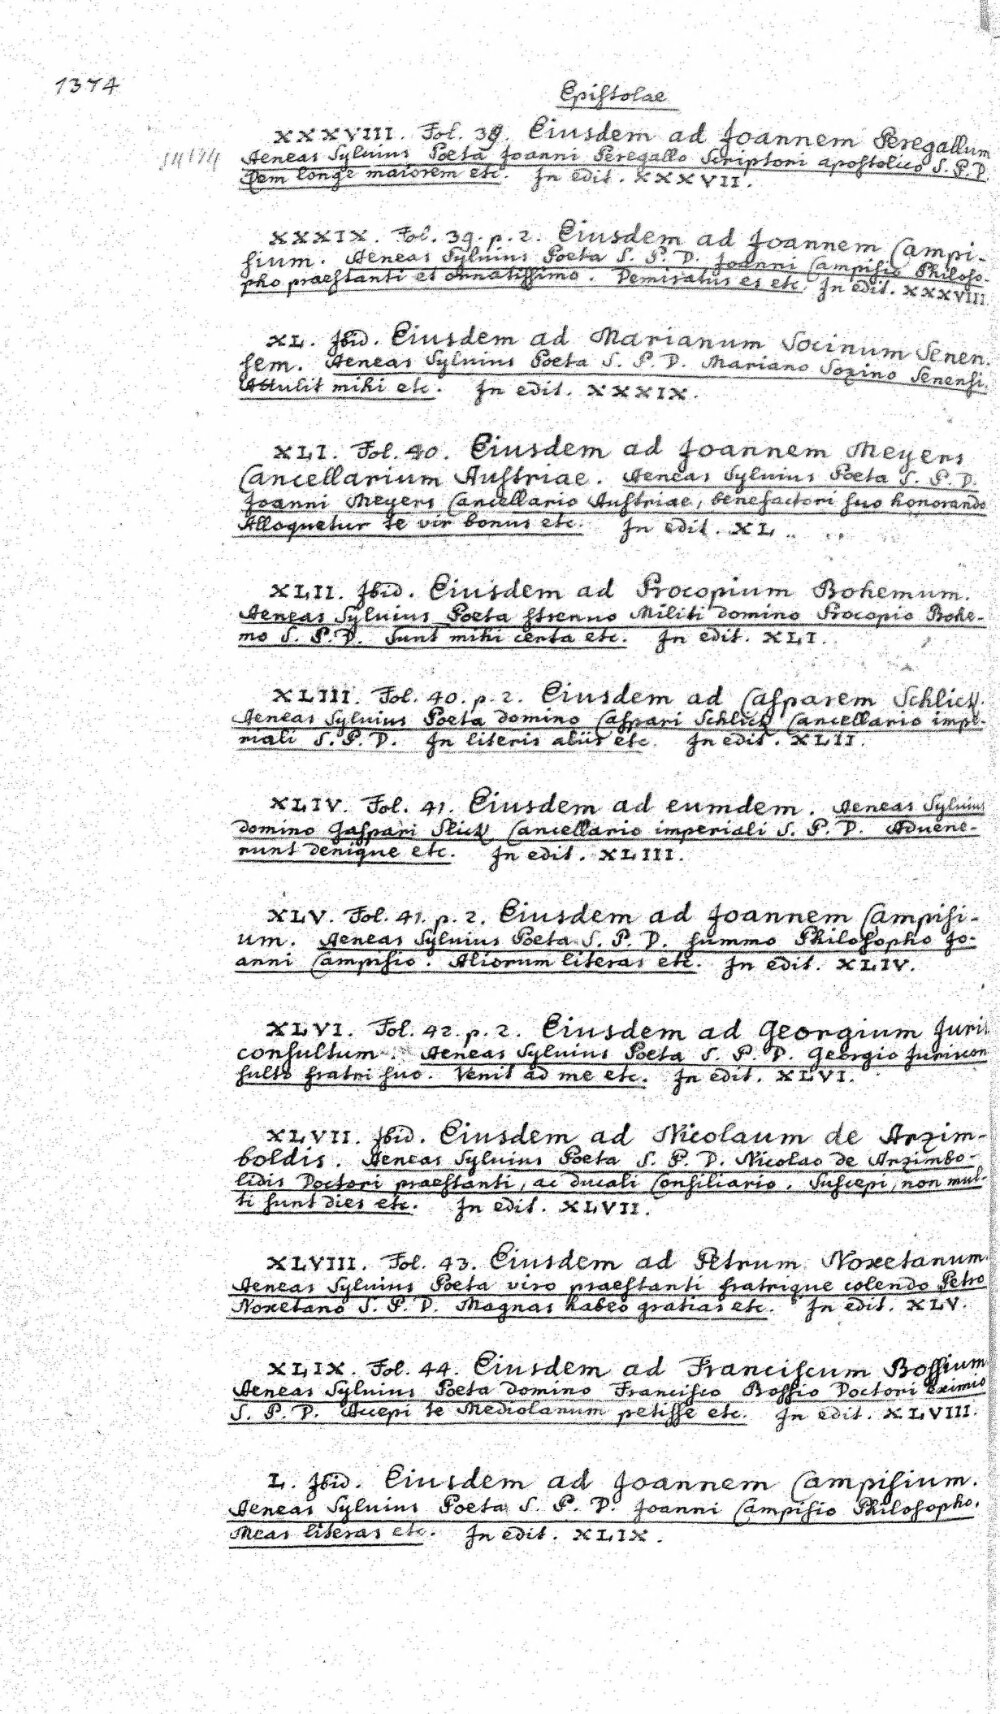 1374
Epistolae
XXXVIII. Fol. 39. Eiusdem ad Joannem Peregallum
Aeneas Sylvius Poeta Joanni Peregallo Scriptori apostolico S. P. D.
Rem longe maiorem etc. In edit. XXXVII.
XXXIX. Fol. 39. p. 2. Eiusdem ad Joannem Campi-
sium. Aeneas Sylvius Poeta S. P. D. Joanni Campisio Philoso-
pho praestanti et ornatissimo. Demiratus es etc. In edit. XXXVIII.
XL. Ibid. Eiusdem ad Marianum Socinum Senen
sem. Aeneas Sylvius Poeta S. P. D. Mariano Sozino Senensi.
Attulit mihi etc. In edit. XXXIX.
XLI. Fol. 40. Eiusdem ad Joannem Meyers
Cancellarium Austriae. Aeneas Sylvius Poeta S. P. D.
Joanni Meyers Cancellario Austriae, benefactori suo honorando
Alloquetur te vir bonus etc. In edit. XL.
XLII. Ibid. Eiusdem ad Procopium Bohemum.
Aeneas Sylvius Poeta strenuo Militi domino Procopio Bohe-
mo S. P. D. Sunt mihi certa etc. In edit. XLI.
XLIII. Fol. 40. p. 2. Eiusdem ad Casparem Schlick.
Aeneas Sylvius Poeta domino Caspari Schlick Cancellario impe-
riali S. P. D. In literis aliis etc. In edit. XLII.
XLIV. Fol. 41. Eiusdem ad eumdem. Aeneas Sylvius
domino Gaspari Slick Cancellario imperiali S. P. D. Advene-
runt denique etc. In edit. XLIII.
XLV. Fol. 41. p. 2. Eiusdem ad Joannem Campisi-
um. Aeneas Sylvius Poeta S. P. D. summo Philosopho Jo-
anni Campisio. Aliorum literas etc. In edit. XLIV.
XLVI. Fol. 42. p. 2. Eiusdem ad Georgium Juris
consultum. Aeneas Sylvius Poeta S. P. D. Georgio Juriscon
sulto fratri suo. Venit ad me etc. In edit. XLVI.
XLVII. Ibid. Eiusdem ad Nicolaum de Arzim-
boldis. Aeneas Sylvius Poeta S. P. D. Nicolao de Arzimbo-
lidis Doctori praestanti, ac ducali Consiliario. Suscepi, non mul-
ti sunt dies etc. In edit. XLVII.
XLVIII. Fol. 43. Eiusdem ad Petrum Noxetanum.
Aeneas Sylvius Poeta viro praestanti fratrique colendo Petro
Noxetano S. P. D. Magnas habeo gratias etc. In edit. XLV.
XLIX. Fol. 44. Eiusdem ad Franciscum Bossium
Aeneas Sylvius Poeta domino Francisco Bossio Doctori eximio
S. P. D. Accepi te Mediolanum petisse etc. In edit. XLVIII.
L. Ibid. Eiusdem ad Joannem Campisium.
Aeneas Sylvius Poeta S. P. D. Joanni Campisio Philosopho.
Meas literas etc. In edit. XLIX.